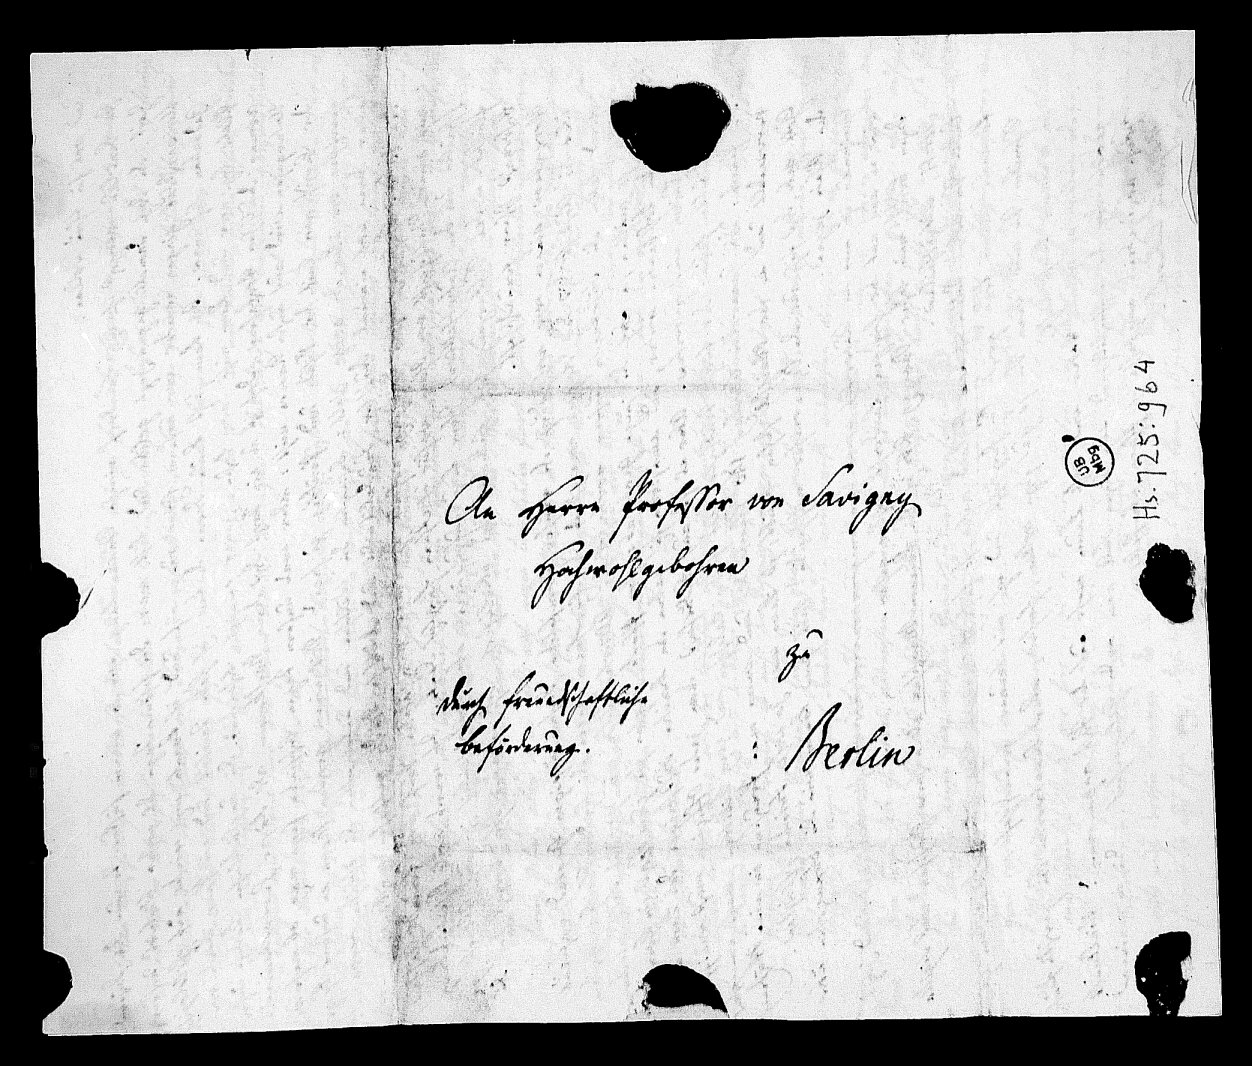 An Herrn Professor von Savigny
Hochwohlgebohren
zu
durch freundschaftliche
beförderung.
Berlin
Hs. 725:964
UB
Mbg